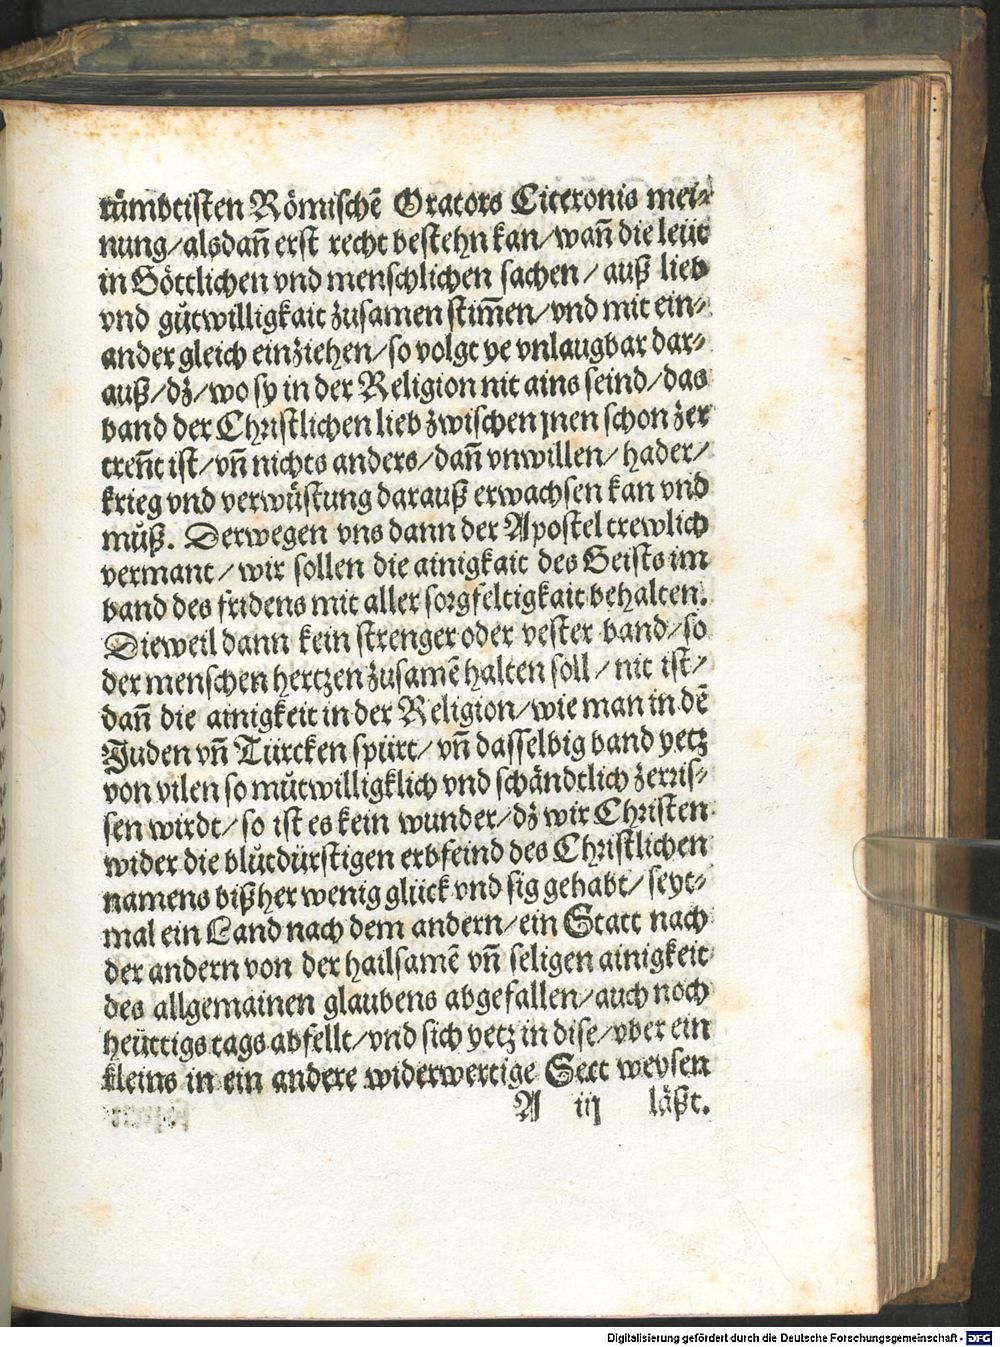 rümbtisten Römischē Orators Ciceronis mei⸗
nung/alsdañ erst recht bestehn kan/wañ die leüt
in Göttlichen vnd menschlichen sachen/ auß lieb
vnd gůtwilligkait zusamen stim̃en/vnd mit ein⸗
ander gleich einziehen/so volgt ye vnlaugbar dar⸗
auß/dz/wo sy in der Religion nit ains seind/das
band der Christlichen lieb zwischen jnen schon zer
treñt ist/vñ nichts anders/dañ vnwillen/hader/
krieg vnd verwüstung darauß erwachsen kan vnd
můß. Derwegen vns dann der Apostel trewlich
vermant/wir sollen die ainigkait des Geists im
band des fridens mit aller sorgfeltigkait behalten.
Dieweil dann kein strenger oder vester band/so
der menschen hertzen zusamē halten soll/nit ist/
dañ die ainigkeit in der Religion/wie man in dē
Juden vñ Türcken spürt/vñ dasselbig band yetz
von vilen so můtwilligklich vnd schändtlich zerris⸗
sen wirdt/so ist es kein wunder/dz wir Christen
wider die blůtdürstigen erbfeind des Christlichen
namens bißher wenig glück vnd sig gehabt/seyt⸗
mal ein Land nach dem andern/ein Statt nach
der andern von der hailsamē vñ seligen ainigkeit
des allgemainen glaubens abgefallen/auch noch
heüttigs tags abfellt/vnd sich yetz in dise/vber ein
kleins in ein andere widerwertige Sect weysen
A iij läßt.
Digitalisierung gefördert durch die Deutsche Forschungsgemeinschaft - DFG